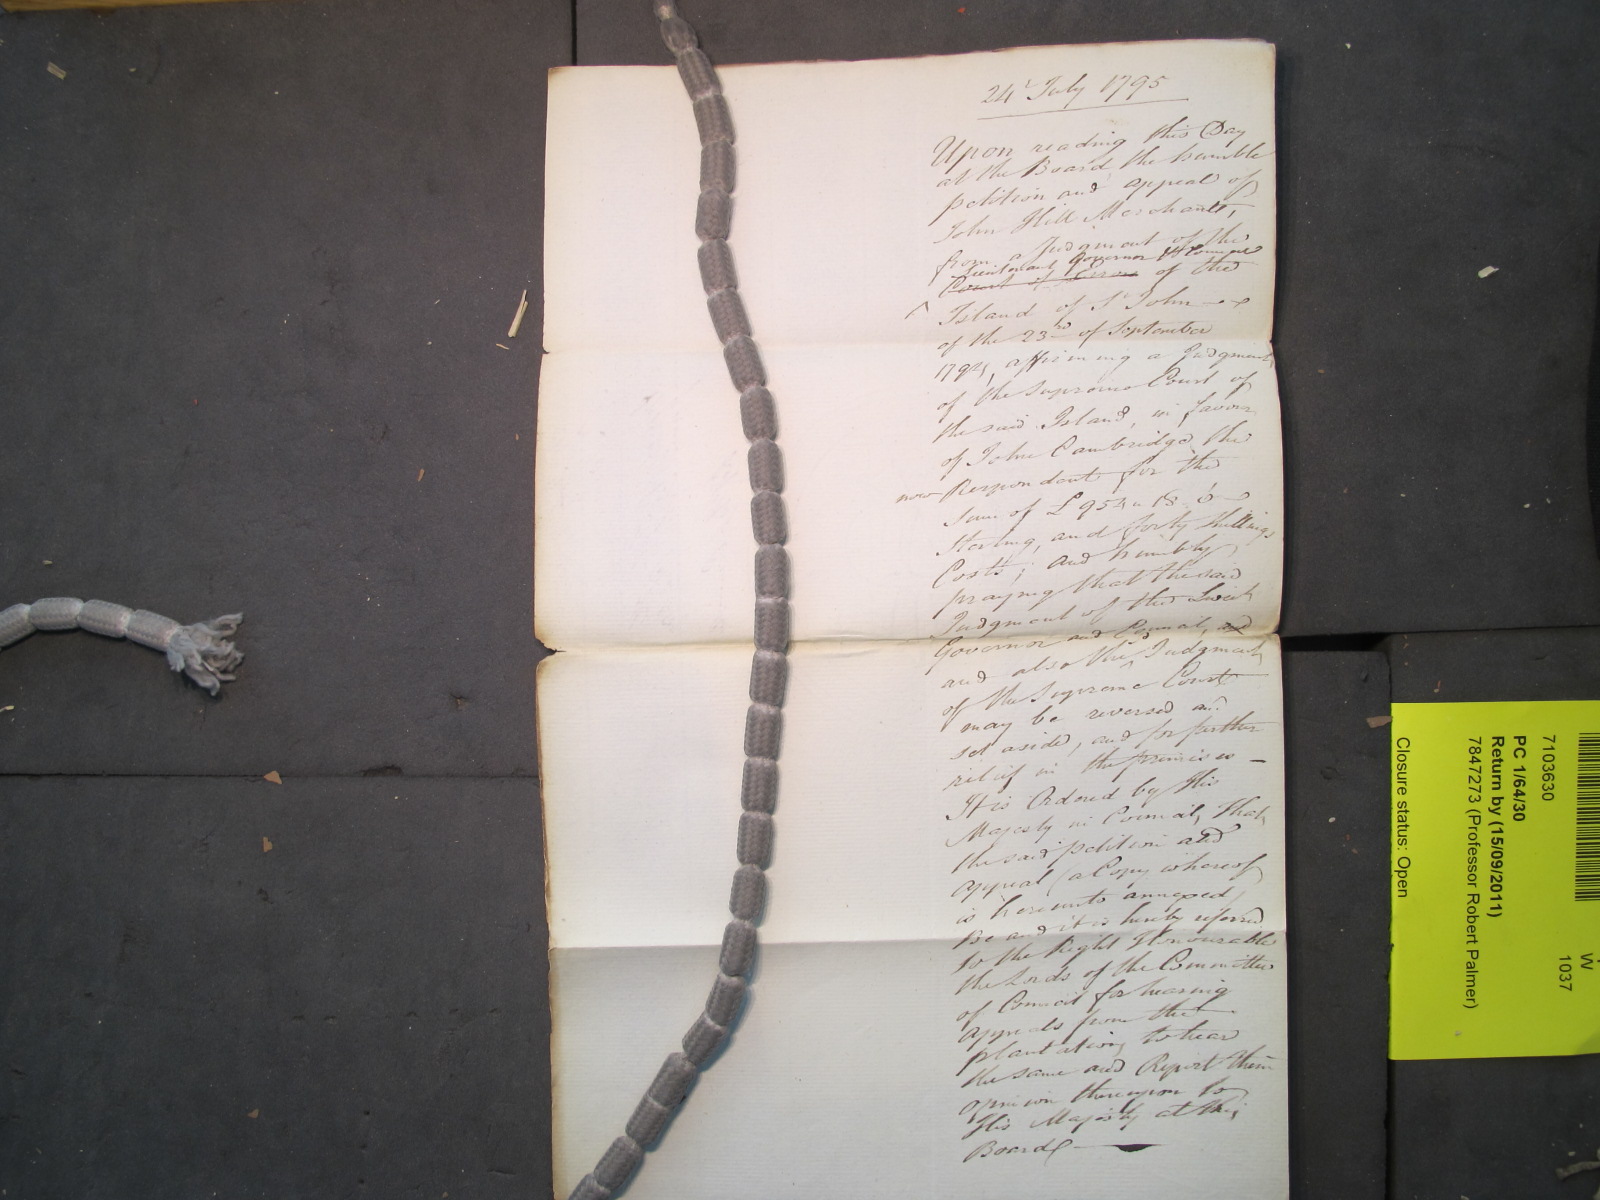 24 July 1795
Upon reading this Day
at the Board the humble
petition and appeal of
John Hill Merchant,
from a Judgment of the
Lieutenant Governor & Council
Court of Error of the
^ Island of St John
of the 23rd of September
1794, affirming a Judgment
of the Supreme Court of
the said Island, in favour
of John Cambridge the
now Respondent for the
Sum of £ 954 " 18 " 6
Sterling, and forty shillings
Costs; and humbly
praying that the said
Judgment of the Lieut
Governor and Council, and
and also the Judgment
of the Supreme Court
may be reversed and
set aside, and for further
relief in the premises –
It is Ordered by His
Majesty in Council, that
the said petition and
appeal (a Copy whereof
is hereunto annexed)
Be and it is hereby referred
to the Right Honourable
the Lords of the Committee
of Council for hearing
Appeals from the
plantations, to hear
the same and Report their
opinion thereupon to
His Majesty at this
Board
7103630
W
1037
PC 1/64/30
Return by (15/09/2011)
7847273 (Professor Robert Palmer)
Closure status: Open